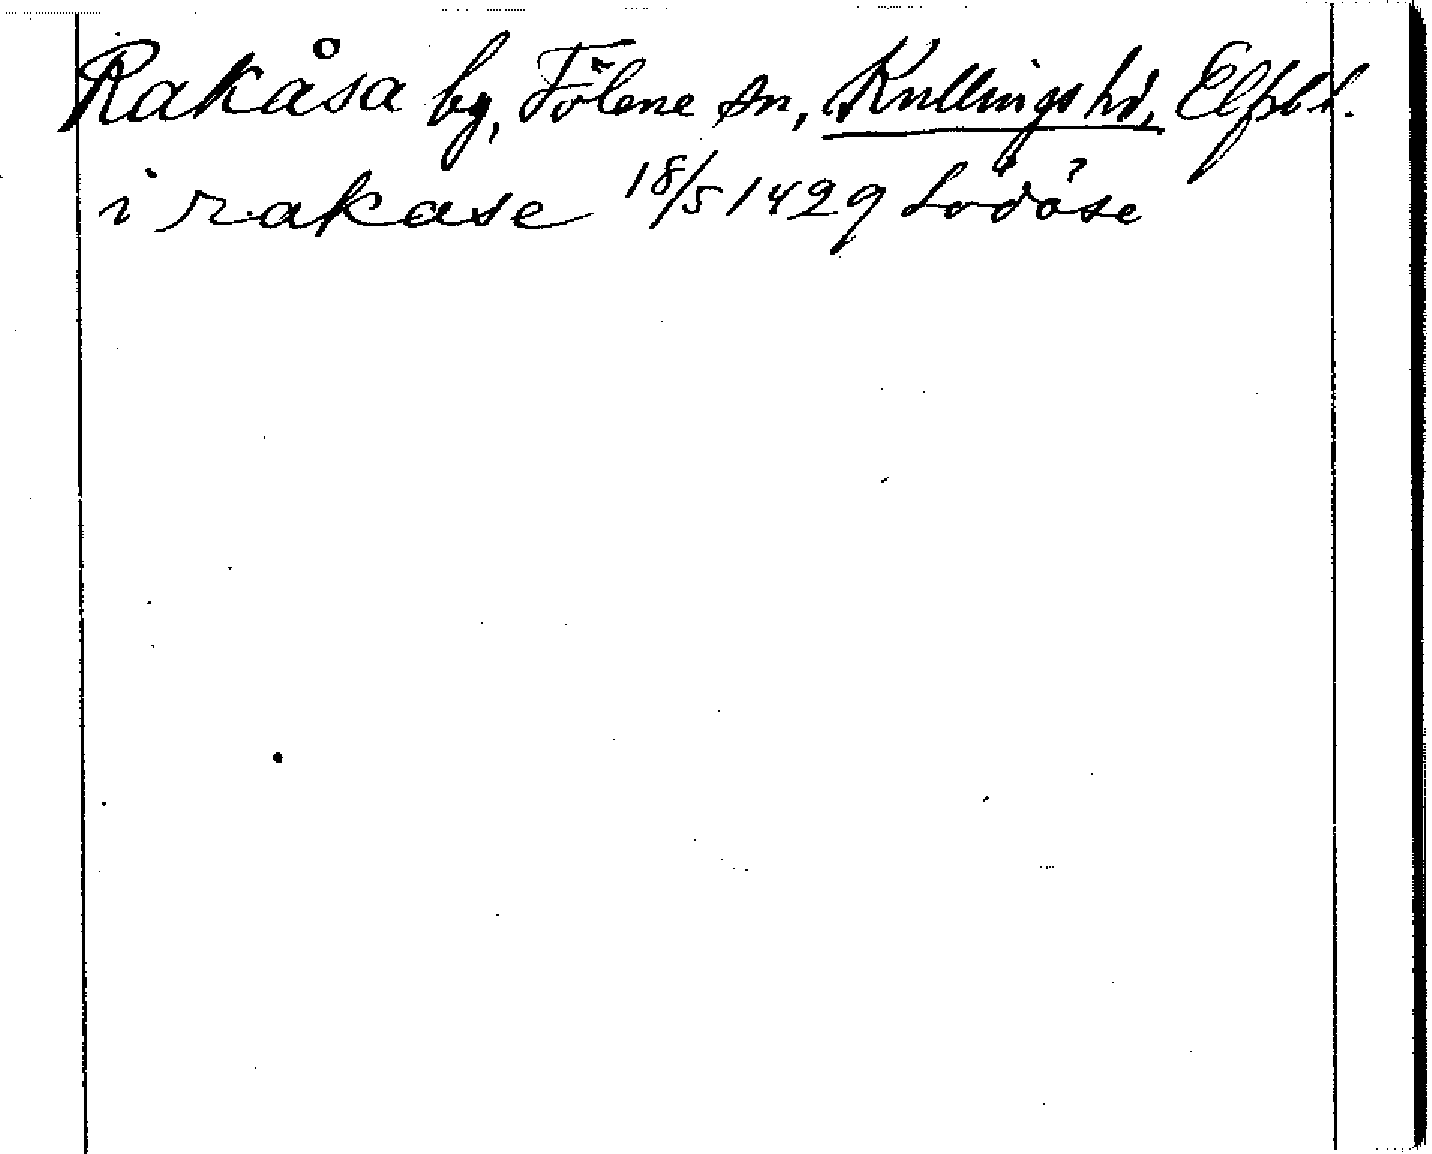 Rakåsa by, Fölene sn, Kullings hd, Elfsb l.
i rakase 18/5 1429 Lödöse